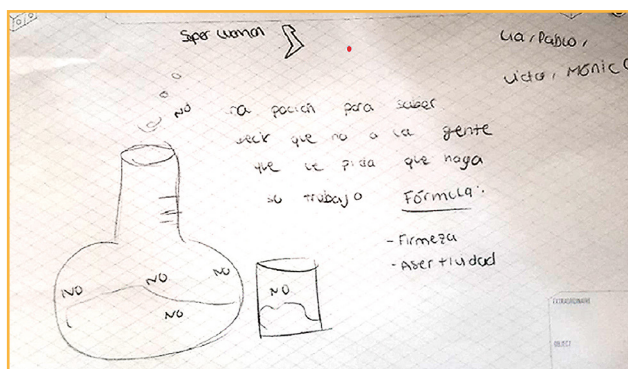 Super woman
Lia, Pablo,
Victor, Mónica
NO
na poción para saber
decir que no a la gente
que le pida que haga
su trabajo Fórmula:
- Firmeza
- Asertividad
NO
NO
NO
NO
NO
EXTRAORDINAIRE
OBJECT